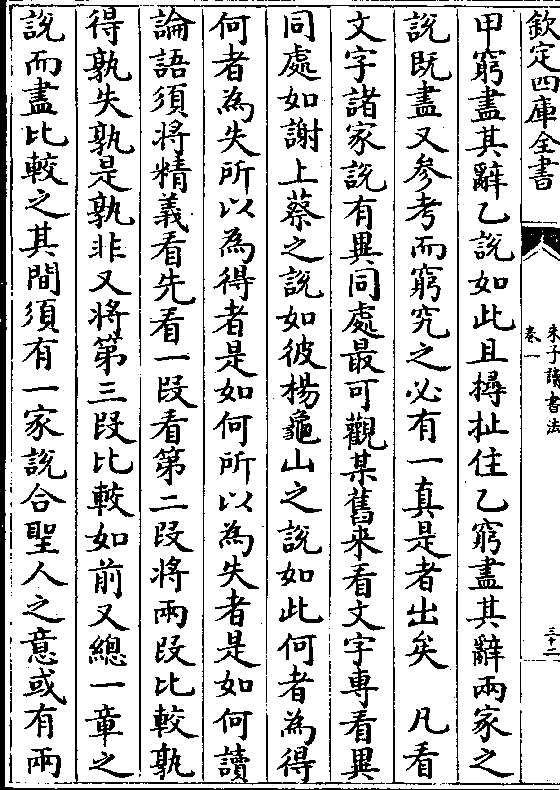 欽定四庫全書
朱子讀書法
卷一
三十二
甲窮盡其辭乙說如此且撏扯住乙窮盡其辭兩家之
說既盡又參考而窮究之必有一真是者出矣　凡看
文字諸家說有異同處最可觀某舊來看文字專看異
同處如謝上蔡之說如彼楊龜山之說如此何者為得
何者為失所以為得者是如何所以為失者是如何讀
論語須將精義看先看一段看第二段將兩段比較孰
得孰失孰是孰非又將第三段比較如前又總一章之
說而盡比較之其間須有一家說合聖人之意或有兩